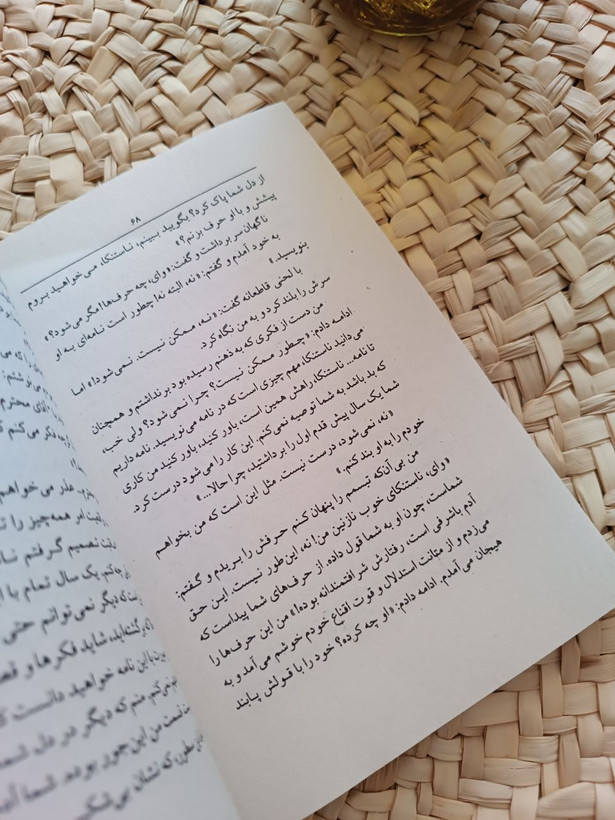 ۶۸
از دل شما پاک کرد؟ بگویید ببینم، ناستنکا، می‌خواهید بروم
پیشش و با او حرف بزنم؟»
ناگهان سر برداشت و گفت: «وای، چه حرف‌ها! مگر می‌شود؟»
به خود آمدم و گفتم: «نه، البته نه! چطور است نامه‌ای به او
بنویسید.»
با لحنی قاطعانه گفت: «نه، ممکن نیست. نمی‌شود!» اما
سرش را بلند کرد و به من نگاه کرد.
من دست از فکری که به ذهنم رسیده بود برنداشتم و همچنان
ادامه دادم: «چطور ممکن نیست؟ چرا نمی‌شود؟ ولی خب،
می‌دانید ناستنکا، مهم چیزی است که در نامه می‌نویسید. نامه داریم
تا نامه... ناستنکا، راهش همین است، باور کنید، باور کنید من کاری
که بد باشد به شما توصیه نمی‌کنم. این کار را می‌شود درست کرد.
شما یک سال پیش قدم اول را برداشتید، چرا حالا...»
«نه، نمی‌شود، درست نیست. مثل این است که من بخواهم
خودم را به او بند کنم.»
من بی آن‌که تبسمم را پنهان کنم حرفش را بریدم و گفتم:
«وای، ناستنکای خوب نازنین من! نه، این طور نیست. این حق
شماست، چون او به شما قول داده. از حرف‌های شما پیداست که
آدم باشرفی است، رفتارش شرافتمندانه بوده!» من این حرف‌ها را
می‌زدم و از متانت استدلال و قوت اقناع خودم خوشم می‌آمد و به
هیجان می‌آمدم. ادامه دادم: «او چه کرده؟ خود را با قولش پابند